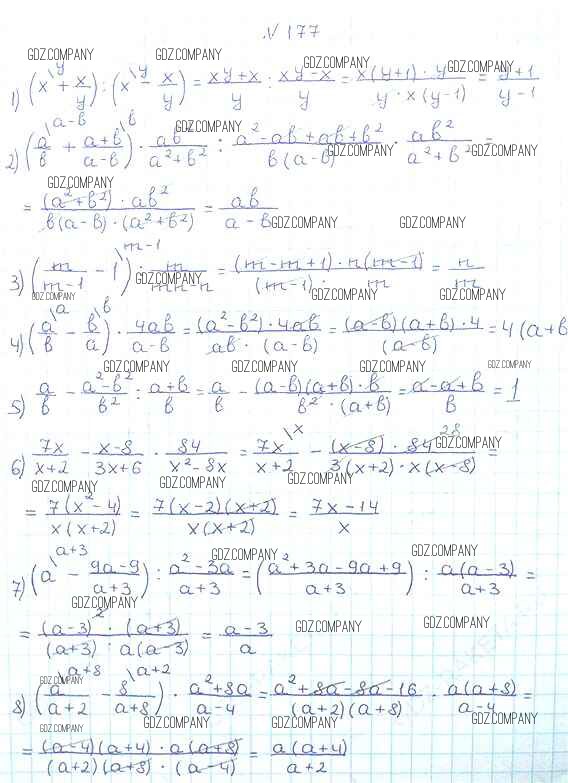 № 177
GDZ.COMPANY GDZ.COMPANY GDZ.COMPANY GDZ.COMPANY
1) (x\y + x/y) : (x\y − x/y) = (xy+x)/y : (xy−x)/y = (x(y+1) · y)/(y · x(y−1)) = (y+1)/(y−1)
GDZ.COMPANY GDZ.COMPANY GDZ.COMPANY
2) (a/b\a−b + (a+b)/(a−b)\b) · ab²/(a²+b²) : (a²−ab+ab+b²)/(b(a−b)) · ab²/(a²+b²) =
GDZ.COMPANY
= ((a²+b²) · ab²)/(b(a−b) · (a²+b²)) = ab/(a−b)
GDZ.COMPANY GDZ.COMPANY
3) (m/(m−1) − 1\m−1) : m/(mn−n) = ((m−m+1) · n(m−1))/((m−1) · m) = n/m
GDZ.COMPANY GDZ.COMPANY GDZ.COMPANY GDZ.COMPANY
4) (a/b\a − b/a\b) · 4ab/(a−b) = ((a²−b²) · 4ab)/(ab · (a−b)) = ((a−b)(a+b) · 4)/(a−b) = 4(a+b
GDZ.COMPANY GDZ.COMPANY GDZ.COMPANY GDZ.COMPANY
5) a/b − (a²−b²)/b² : (a+b)/b = a/b − ((a−b)(a+b) · b)/(b² · (a+b)) = (a−a+b)/b = 1
GDZ.COMPANY
6) 7x/(x+2) − (x−8)/(3x+6) · 84/(x²−8x) = 7x/(x+2)\x − ((x−8) · 84 28)/(3(x+2) · x(x−8)) =
GDZ.COMPANY GDZ.COMPANY GDZ.COMPANY
= 7(x²−4)/(x(x+2)) = 7(x−2)(x+2)/(x(x+2)) = (7x−14)/x
GDZ.COMPANY GDZ.COMPANY
7) (a\a+3 − (9a−9)/(a+3)) : (a²−3a)/(a+3) = ((a²+3a−9a+9)/(a+3)) : a(a−3)/(a+3) =
GDZ.COMPANY
= ((a−3)² · (a+3))/((a+3) · a(a−3)) = (a−3)/a
GDZ.COMPANY GDZ.COMPANY
GDZ.COMPANY
8) (a/(a+2)\a+8 − 8/(a+8)\a+2) · (a²+8a)/(a−4) = (a²+8a−8a−16)/((a+2)(a+8)) · a(a+8)/(a−4) =
GDZ.COMPANY GDZ.COMPANY GDZ.COMPANY GDZ.COMPANY
= ((a−4)(a+4) · a(a+8))/((a+2)(a+8) · (a−4)) = a(a+4)/(a+2)